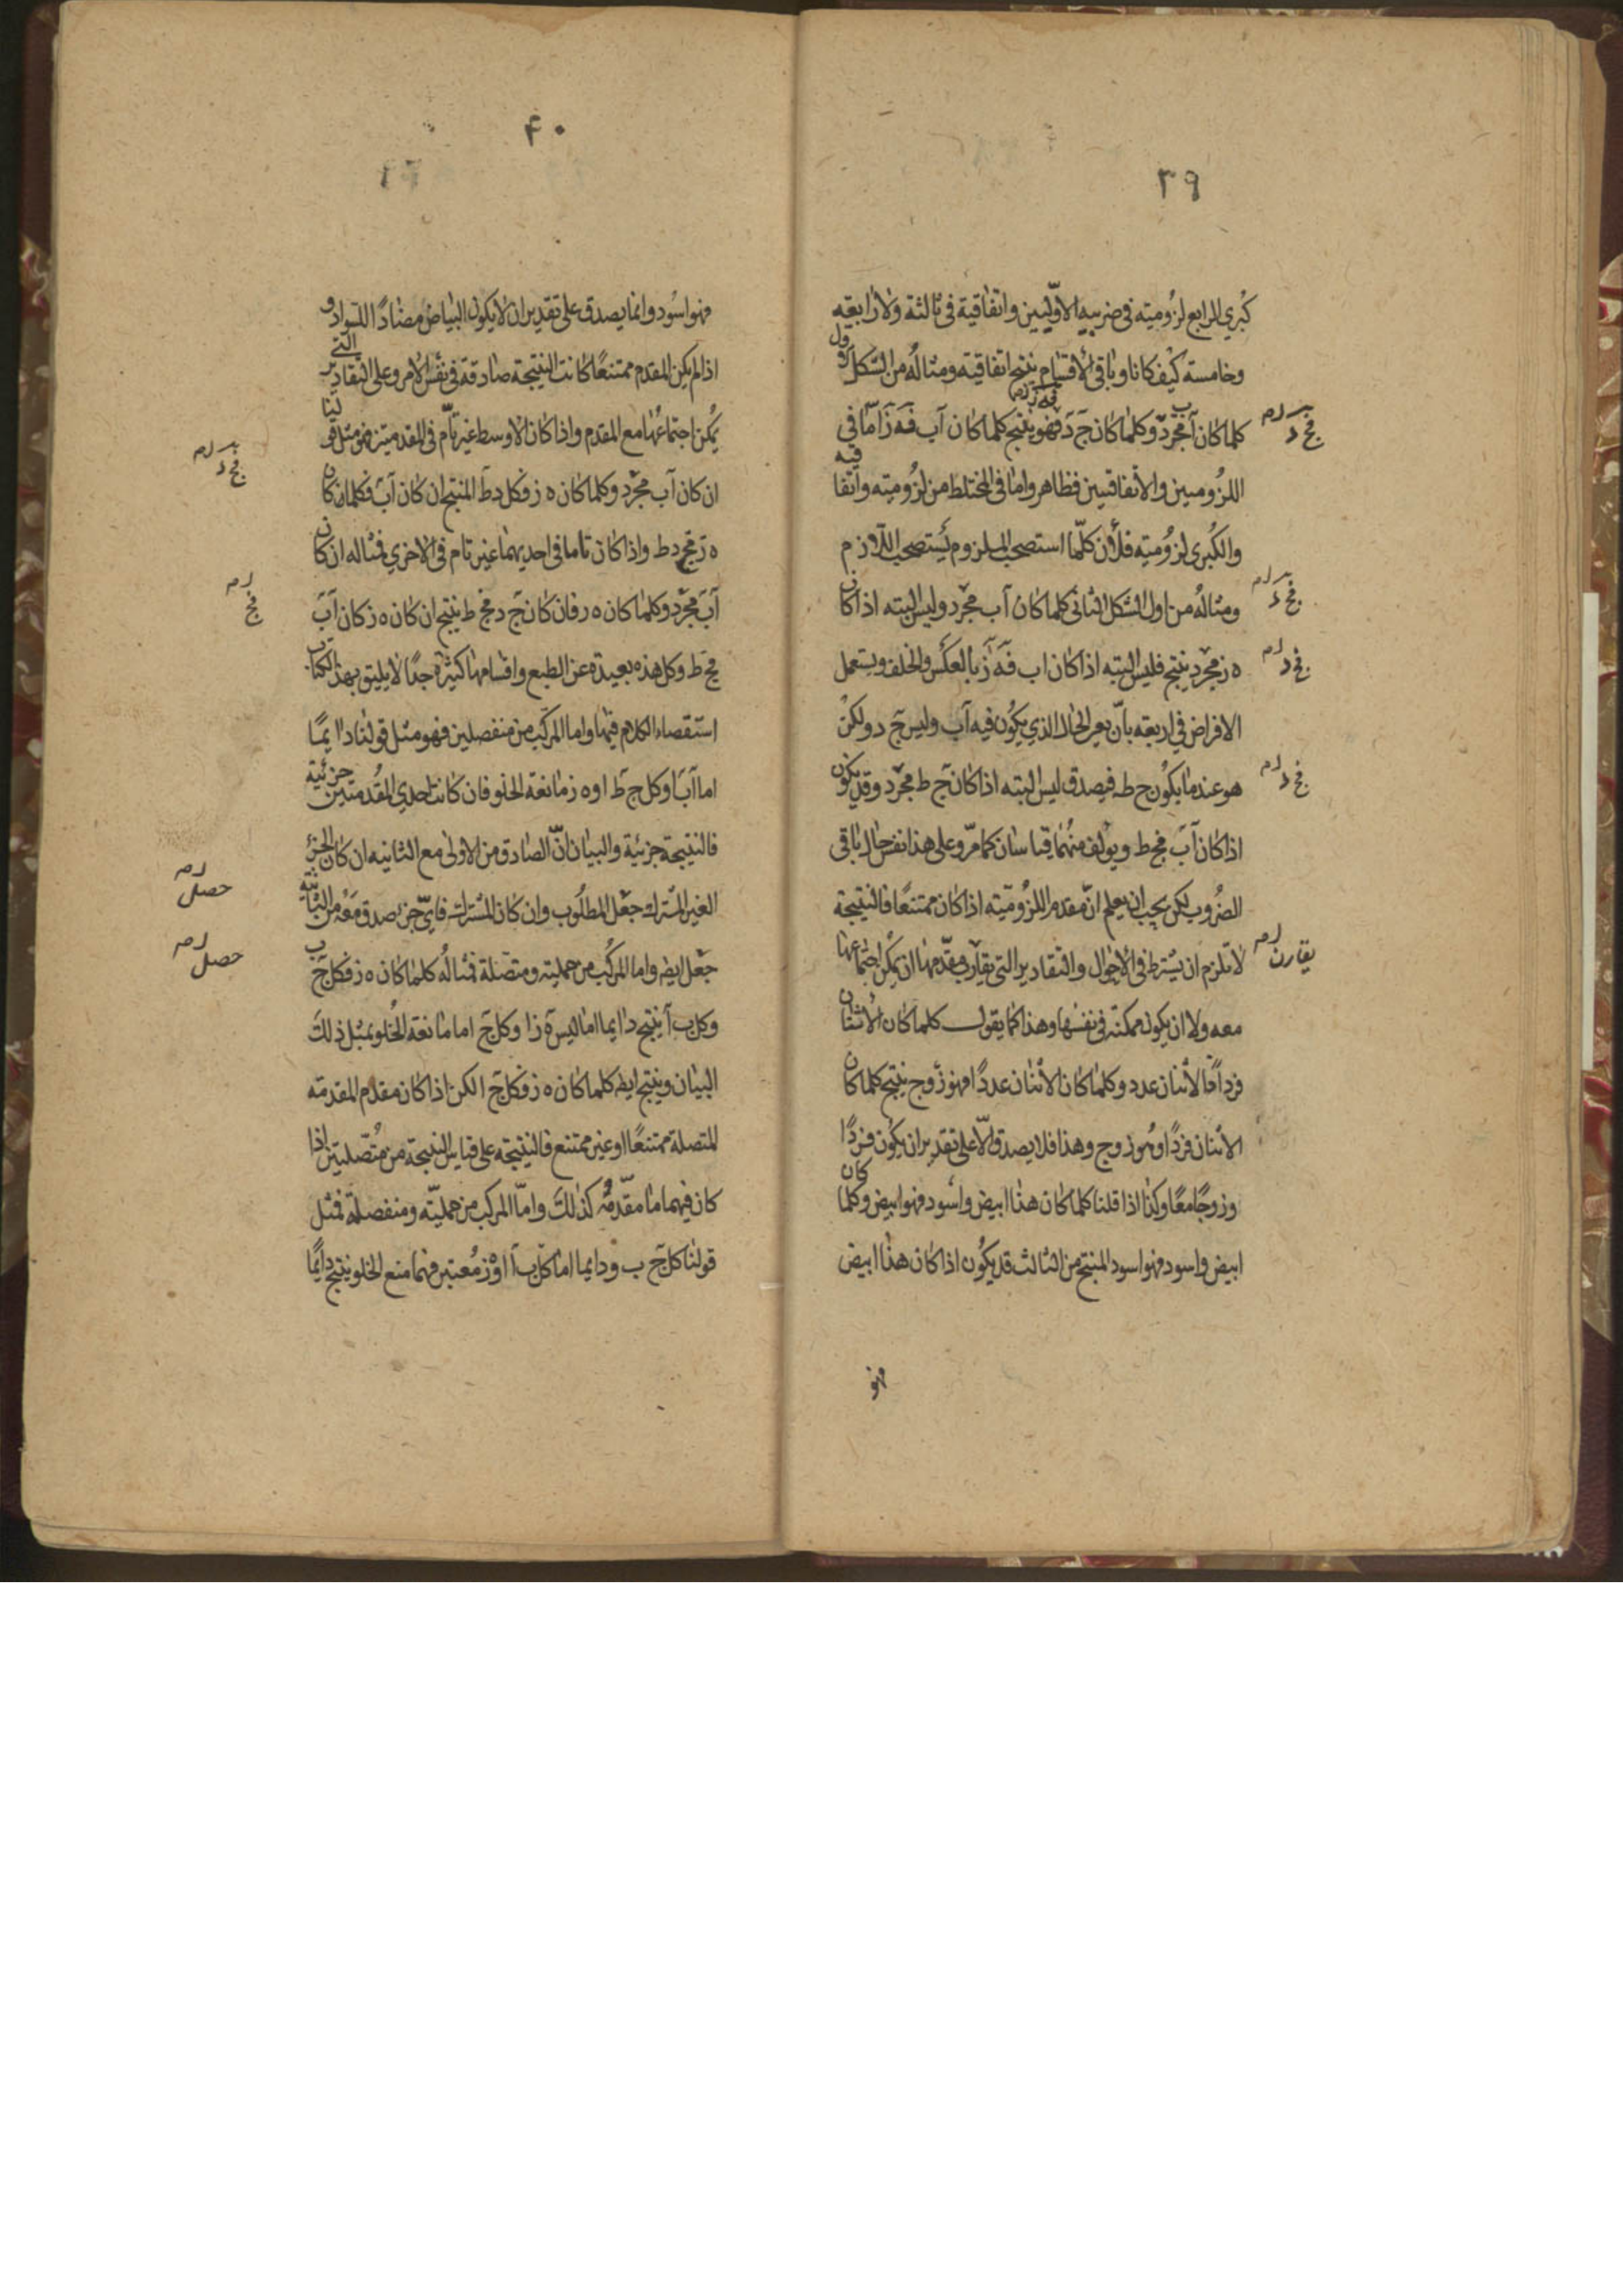 ٣٩
كبرى الرابع لزوميته في ضربيه الاوّليين واتفاقية في ثالثة ولا رابعته
وخامسة كيف كانا وباقي الاقسام ينتج اتفاقيته ومثاله من الشكل الاول
كلما كان آب فجَ دَ وكلما كان جَ دَ فهَ زَ فهو ينتج كلما كان آب فهَ زَ امّا في
اللزوميين والاتفاقيين فظاهر واما في المختلط من لزوميته واتفاقيه
والكبرى لزوميته فلأن كلّما استصحب الملزوم يستصحب اللازم
ومثاله من اول الشكل الثاني كلما كان آب فجَ د وليس البته اذا كان
ه ز فجَ د ينتج فليس البته اذا كان اب فهَ زَ بالعكس والخلف ويستعمل
الافراض في اربعته بان يعين الحال الذي يكون فيه آب وليس جَ د ولكن
هو عند ما يكون ح ط فيصدق ليس البته اذا كان حَ ط فجَ د وقد يكون
اذا كان آبَ فح ط ويؤلف منهما قياسان كما مرّ وعلى هذا نفس حال باقي
الضروب لكن يجب ان يعلم انّ مقدم اللزوميّته اذا كان ممتنعًا فالنتيجة
لا تلزم ان يشترط في الاحوال والتقادير التي يقارن مقدّمها ان يمكن اجتماعها
معه ولا ان يكون ممكنة في نفسها وهذا كما يقول كلما كان الاثنان
فرداً فالاثنان عدد وكلما كان الاثنان عدداً فهو زوج ينتج كلما كان
الاثنان فردًا وهو زوج وهذا فلا يصدق الّا على تقدير ان يكون فردًا
وزوجًا معًا وكذا اذا قلنا كلما كان هذا ابيض واسود فهو ابيض وكلما كان
ابيض واسود فهو اسود المنتج من الثالث قد يكون اذا كان هذا ابيض
فهو
فج د
فج د
فج د
فج د
يقارن
٤٠
فهو اسود وانما يصدق على تقدير ان لا يكون البياض مضاداً للسواد و
اذا لم يكن المقدم ممتنعًا كانت النتيجة صادقة في نفس الامر وعلى التقادير التي
يمكن اجتماعها مع المقدم واذا كان الاوسط غير تامّ في المقدمتين فهو مثل قولنا
ان كان آب فجَ د وكلما كان ه ز فكل د ط المنتج ان كان آبَ فكلما كان
ه ز فج د ط واذا كان تاما في احديهما غير تام في الاخرى فمثاله ان كان
آبَ فجَ د وكلما كان ه ز فان كان جَ د فح ط ينتج ان كان ه ز كان آبَ
فح ط وكل هذه بعيدة عن الطبع واقسامها كثيرة جدًا لا يليق بهذا الكتاب
استقصاء الكلام فيها واما المركب من منفصلين فهو مثل قولنا دايمًا
اما آبَ او كل ج ط او ه ز مانعة الخلو فان كانت احدى المقدمتين جزئية
فالنتيجة جزئية والبيان انّ الصادق من الاولى مع الثانيه ان كان الجزء
الغير المشترك حصل المطلوب وان كان المشترك فايّ جزء صدق معه من الثانية
حصل ايضا واما المركب من حملية ومتصلة فمثاله كلما كان ه ز فكل جَ ب
وكل ب آ ينتج دايما اما ليس ه ز او كل جَ ا ما مانعة الخلو بمثل ذلك
البيان وينتج ايضا كلما كان ه ز فكل جَ ا لكن اذا كان مقدم المقدمة
المتصلة ممتنعًا او غير ممتنع فالنتيجة على قياس النتيجة من متّصلتين اذا
كان فيهما ما مقدّمه كذلك وامّا المركب من حمليّة ومنفصلة فمثل
قولنا كل جَ ب ودايما اما كل بَ آ او ه ز معتبر فهما منع الخلو ينتج دايمًا
فج د
فج
حصل
حصل